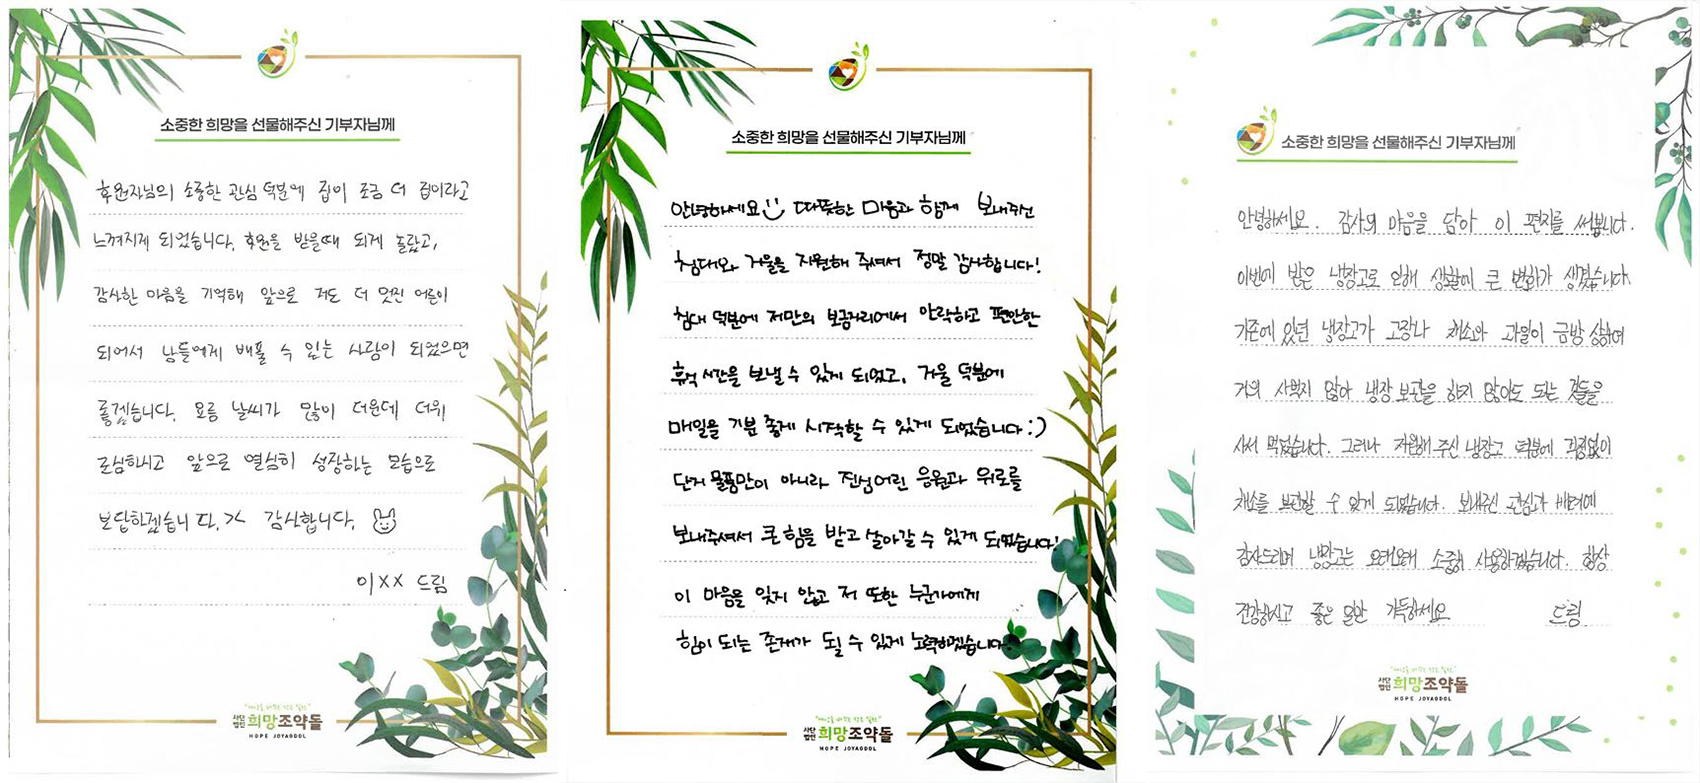 소중한 희망을 선물해주신 기부자님께
후원자님의 소중한 관심 덕분에 집이 조금 더 집이라고
느껴지게 되었습니다. 후원을 받을때 되게 놀랐고,
감사한 마음을 기억해 앞으로 저도 더 멋진 어른이
되어서 남들에게 베풀 수 있는 사람이 되었으면
좋겠습니다. 요즘 날씨가 많이 더운데 더위
조심하시고 앞으로 열심히 성장하는 모습으로
보답하겠습니다. ^^ 감사합니다.
이XX 드림
사단법인 희망조약돌
HOPE JOYAGDOL
소중한 희망을 선물해주신 기부자님께
안녕하세요 따뜻한 마음과 함께 보내주신
침대와 거울을 지원해 주셔서 정말 감사합니다!
침대 덕분에 저만의 보금자리에서 안락하고 편안한
휴식 시간을 보낼 수 있게 되었고, 거울 덕분에
매일을 기분 좋게 시작할 수 있게 되었습니다 :)
단지 물품만이 아니라 진심어린 응원과 위로를
보내주셔서 큰 힘을 받고 살아갈 수 있게 되었습니다!
이 마음을 잊지 않고 저 또한 누군가에게
힘이 되는 존재가 될 수 있게 노력하겠습니다.
사단법인 희망조약돌
HOPE JOYAGDOL
소중한 희망을 선물해주신 기부자님께
안녕하세요. 감사의 마음을 담아 이 편지를 써봅니다.
이번에 받은 냉장고로 인해 생활에 큰 변화가 생겼습니다
기존에 있던 냉장고가 고장나 채소와 과일이 금방 상하여
거의 사먹지 않아 냉장 보관을 하지 않아도 되는 것들을
사서 먹었습니다. 그러나 지원해 주신 냉장고 덕분에 걱정없이
채소를 보관할 수 있게 되었습니다. 보내주신 관심과 배려에
감사드리며 냉장고는 오래오래 소중히 사용하겠습니다. 항상
건강하시고 좋은 일만 가득하세요 드림
사단법인 희망조약돌
HOPE JOYAGDOL